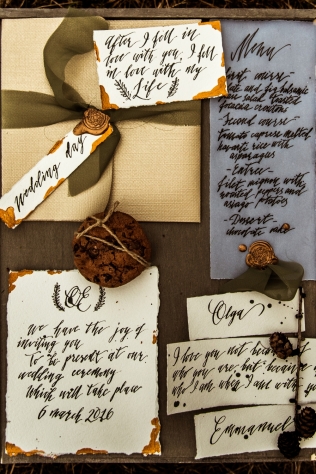 After I fell in
love with you, I fell
in love with my
Life
Wedding day
Menu
First course
Date and fig balsamic
Second course
Tomato caprese melted
rice with
asparagus
Entree
filet mignon with
roasted pepers and
asiago potatoes
Dessert
chocolate cake
OE
We have the joy of
inviting you
To be present at our
wedding ceremony
Which will take place
6 march 2016
Olga
I love you not because
who you are, but because of
who I am when I am with you
Emmanuel